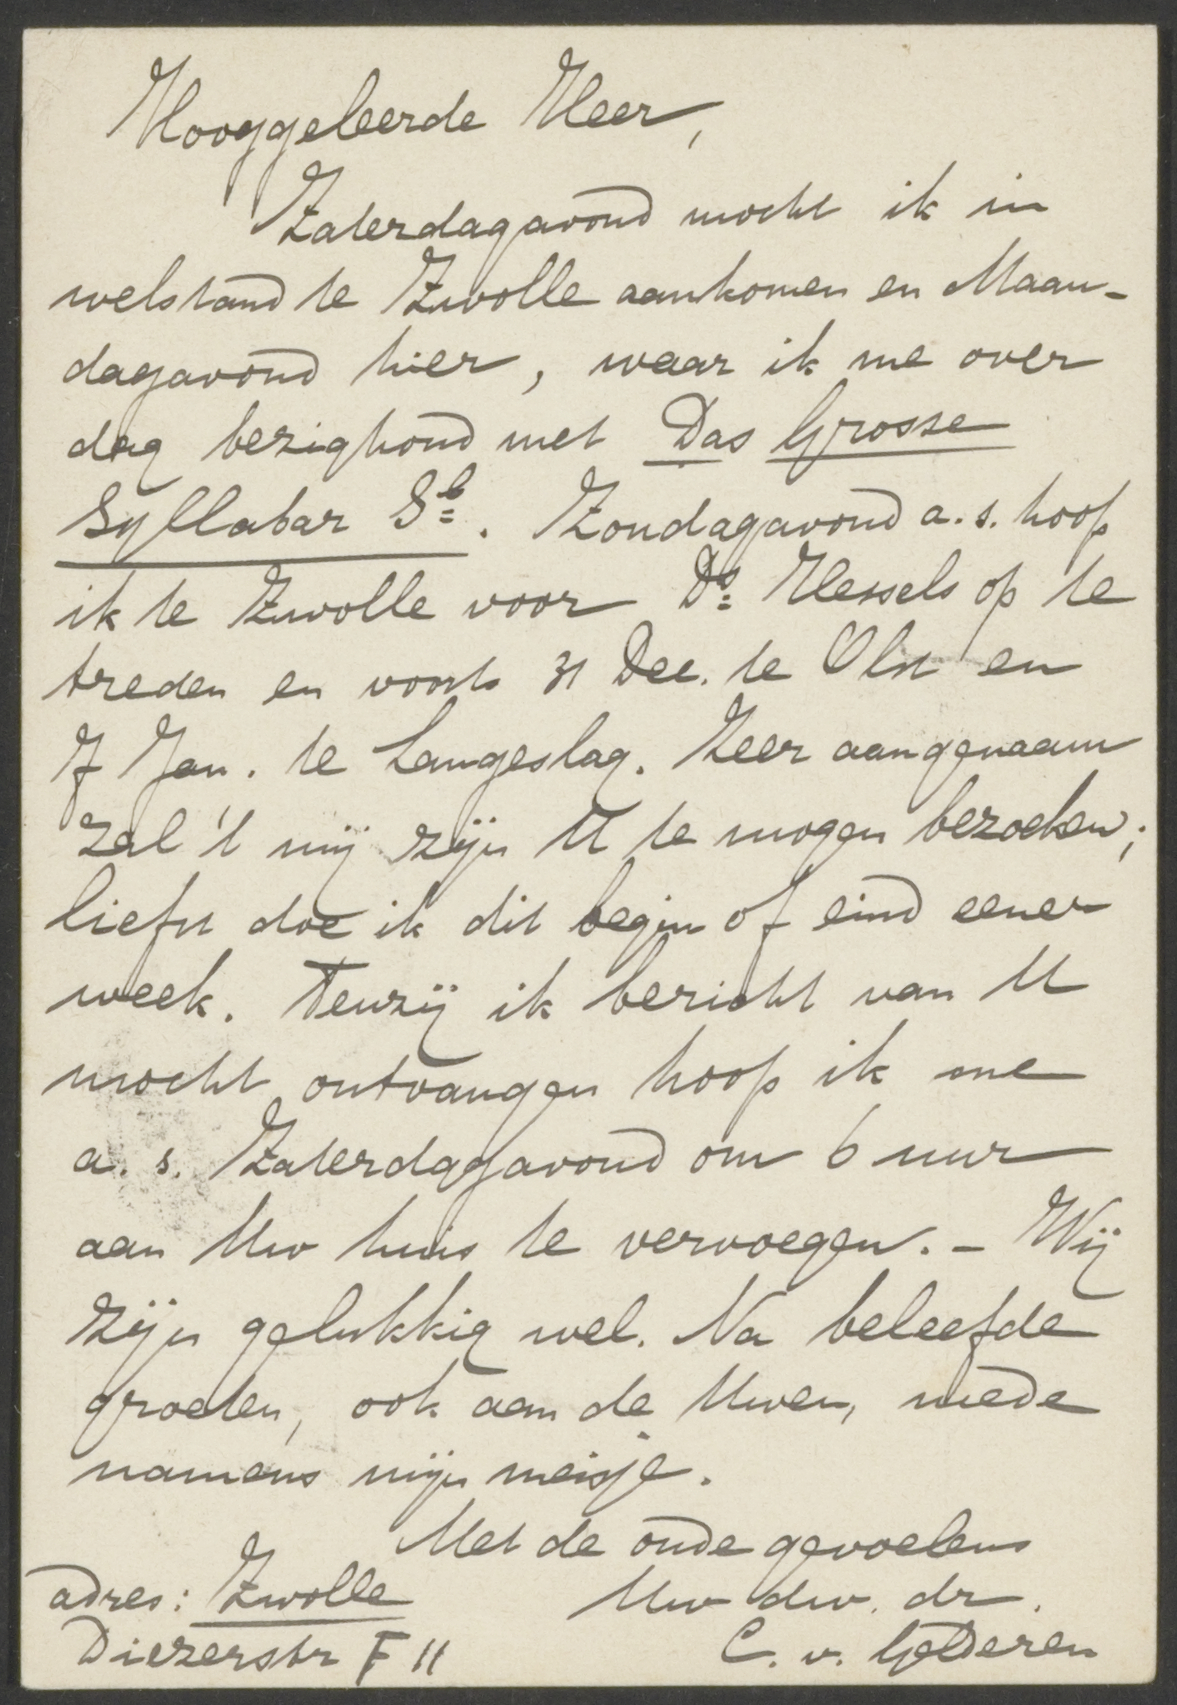 Hooggeleerde Heer,
Zaterdagavond mocht ik in
welstand te Zwolle aankomen en Maan-
dagavond hier, waar ik me over
dag bezighoud met Das Grosse
Syllabar Sb. Zondagavond a.s. hoop
ik te Zwolle voor Ds. Hessels op te
treden en voorts 31 Dec. te Olst en
7 Jan. te Langeslag. Zeer aangenaam
zal 't mij zijn U te mogen bezoeken;
liefst doe ik dit begin of eind eener
week. Tenzij ik bericht van U
mocht ontvangen hoop ik me
a. s. Zaterdagavond om 6 uur
aan Uw huis te vervoegen. – Wij
zijn gelukkig wel. Na beleefde
groeten, ook aan de Uwen, mede
namens mijn meisje.
Met de oude gevoelens
Uw dw. dr.
C. v. Gelderen
adres: Zwolle
Diezerstr F 11